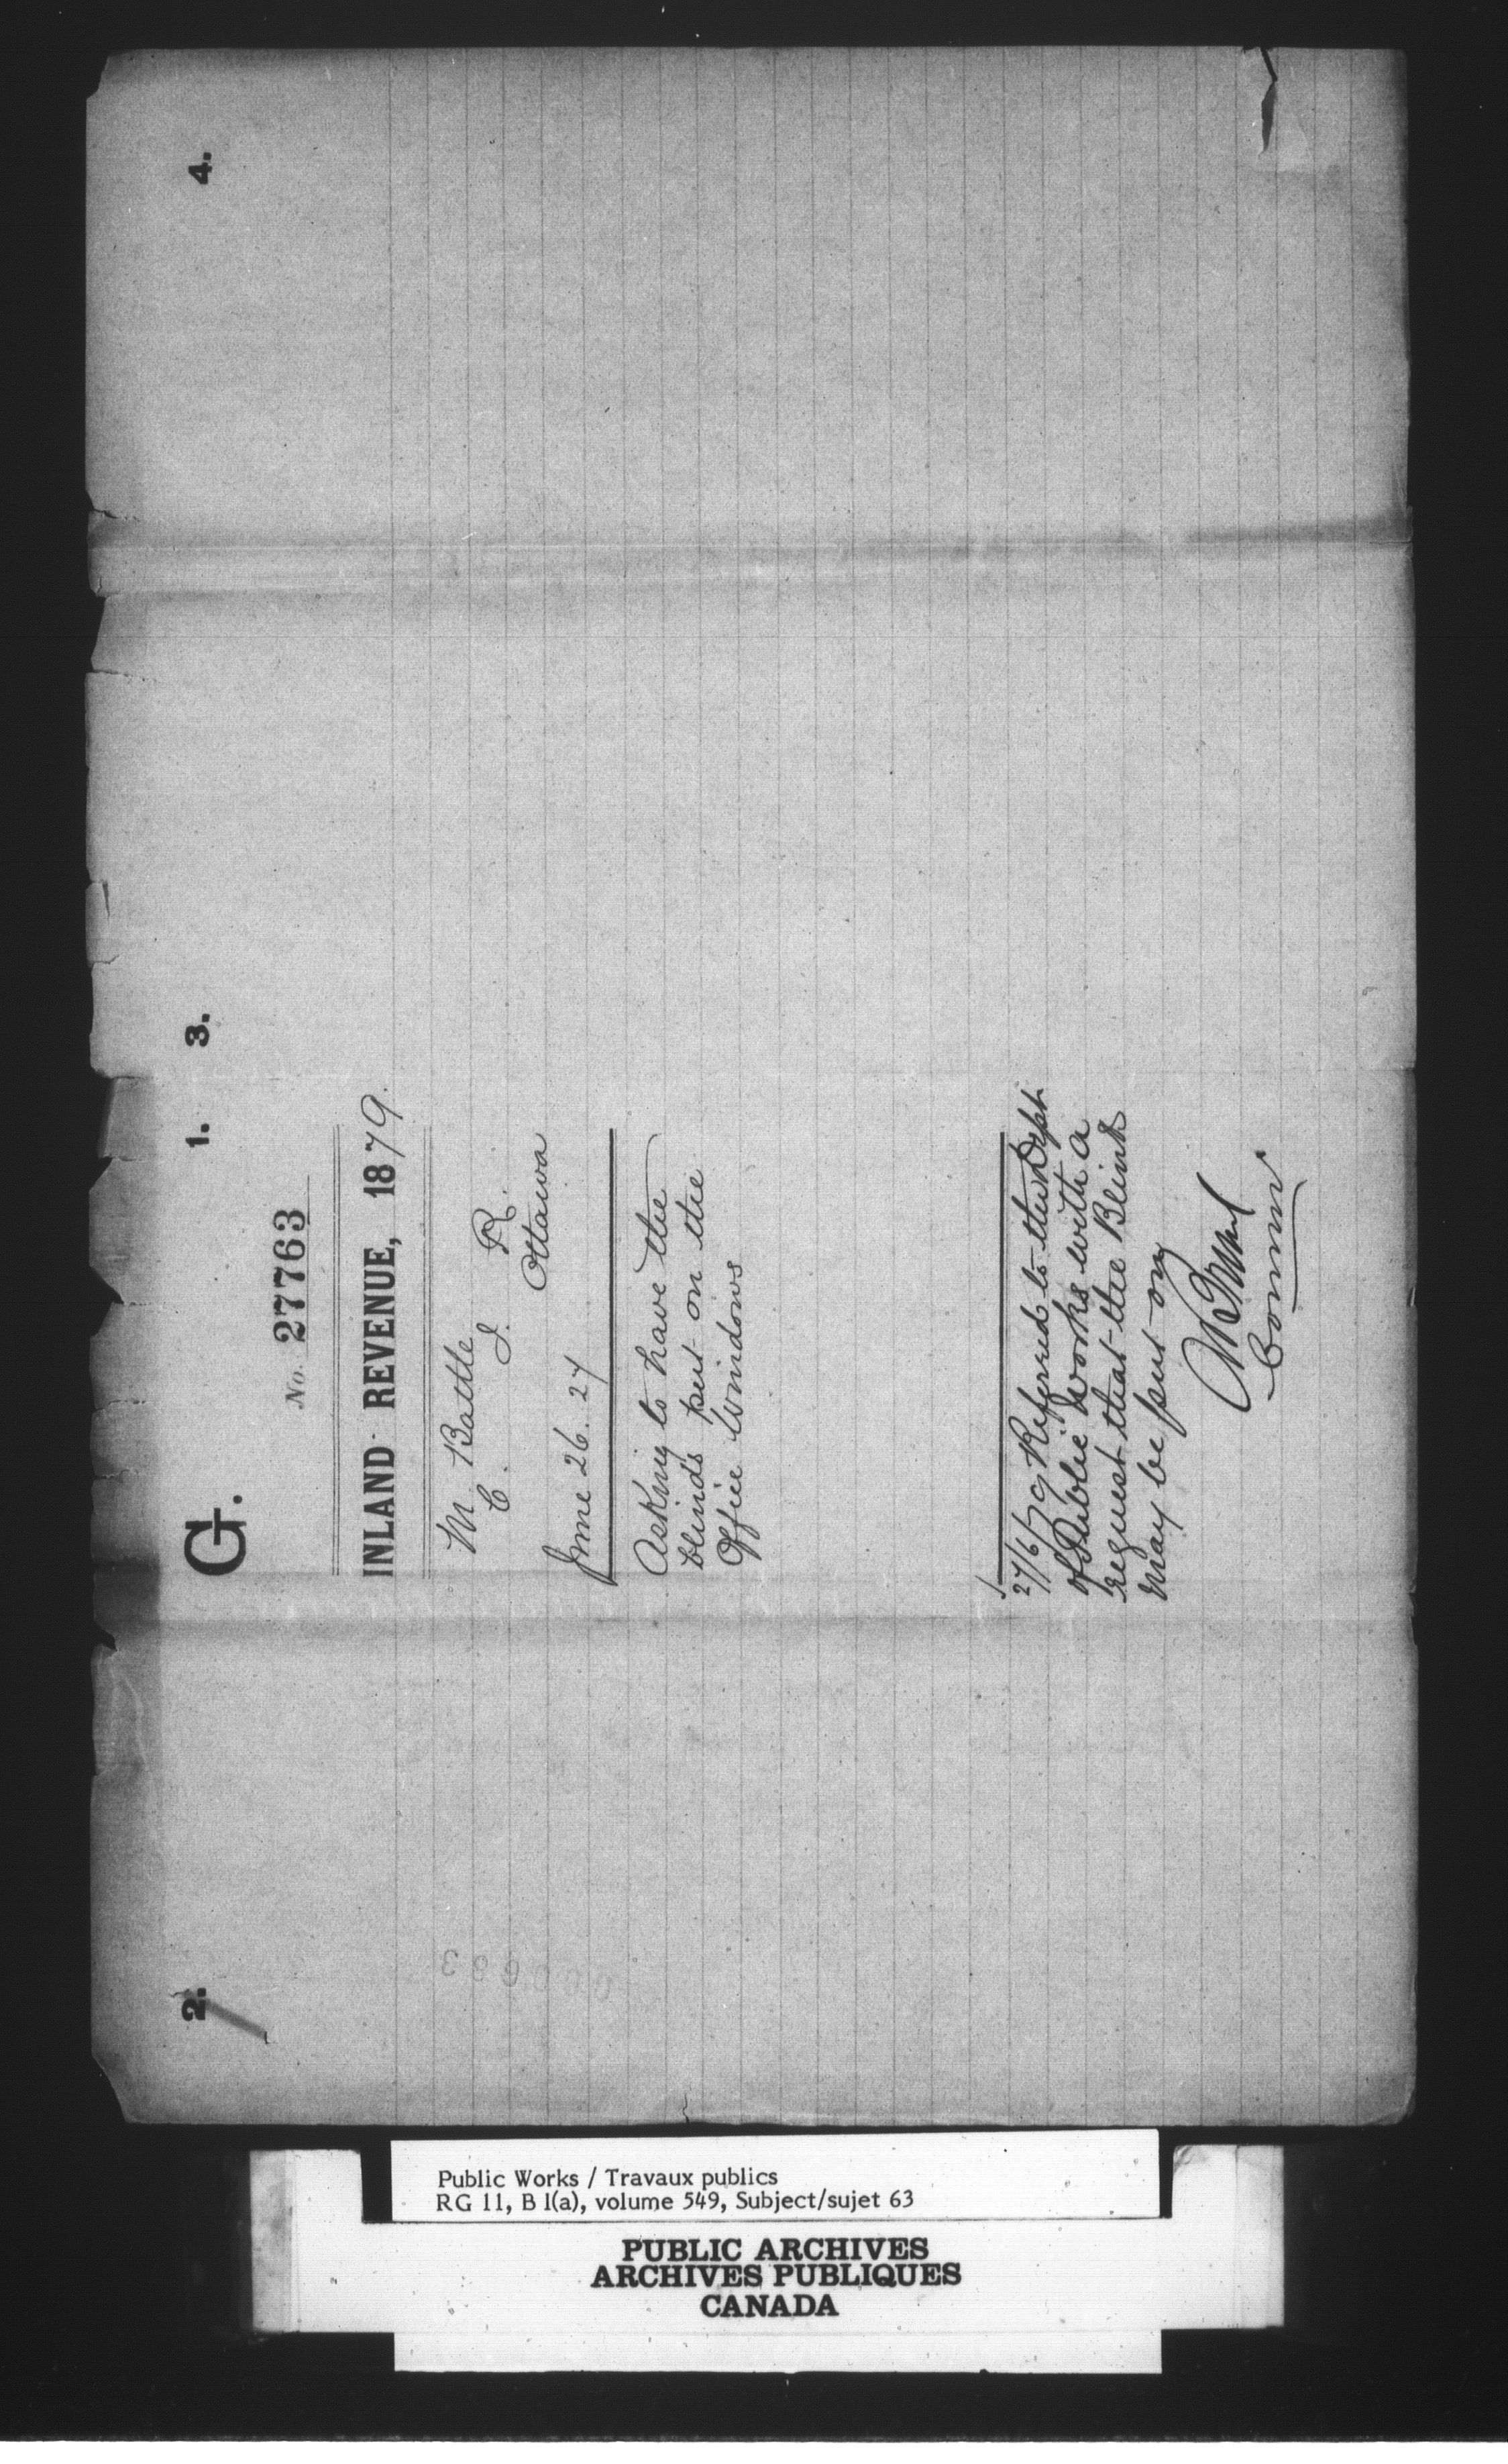 G.
1.
No. 27763
INLAND REVENUE, 1879.
M Battle
C. I. R.
Ottawa
June 26. 27
Asking to have the
blinds put on the
Office Windows
27/6/79 Referred to the Dept
of Public Works with a
request that the Blinds
may be put on
Commr
2.
3.
4.
Public Works / Travaux publics
RG 11, B 1(a), volume 549, Subject/sujet 63
PUBLIC ARCHIVES
ARCHIVES PUBLIQUES
CANADA